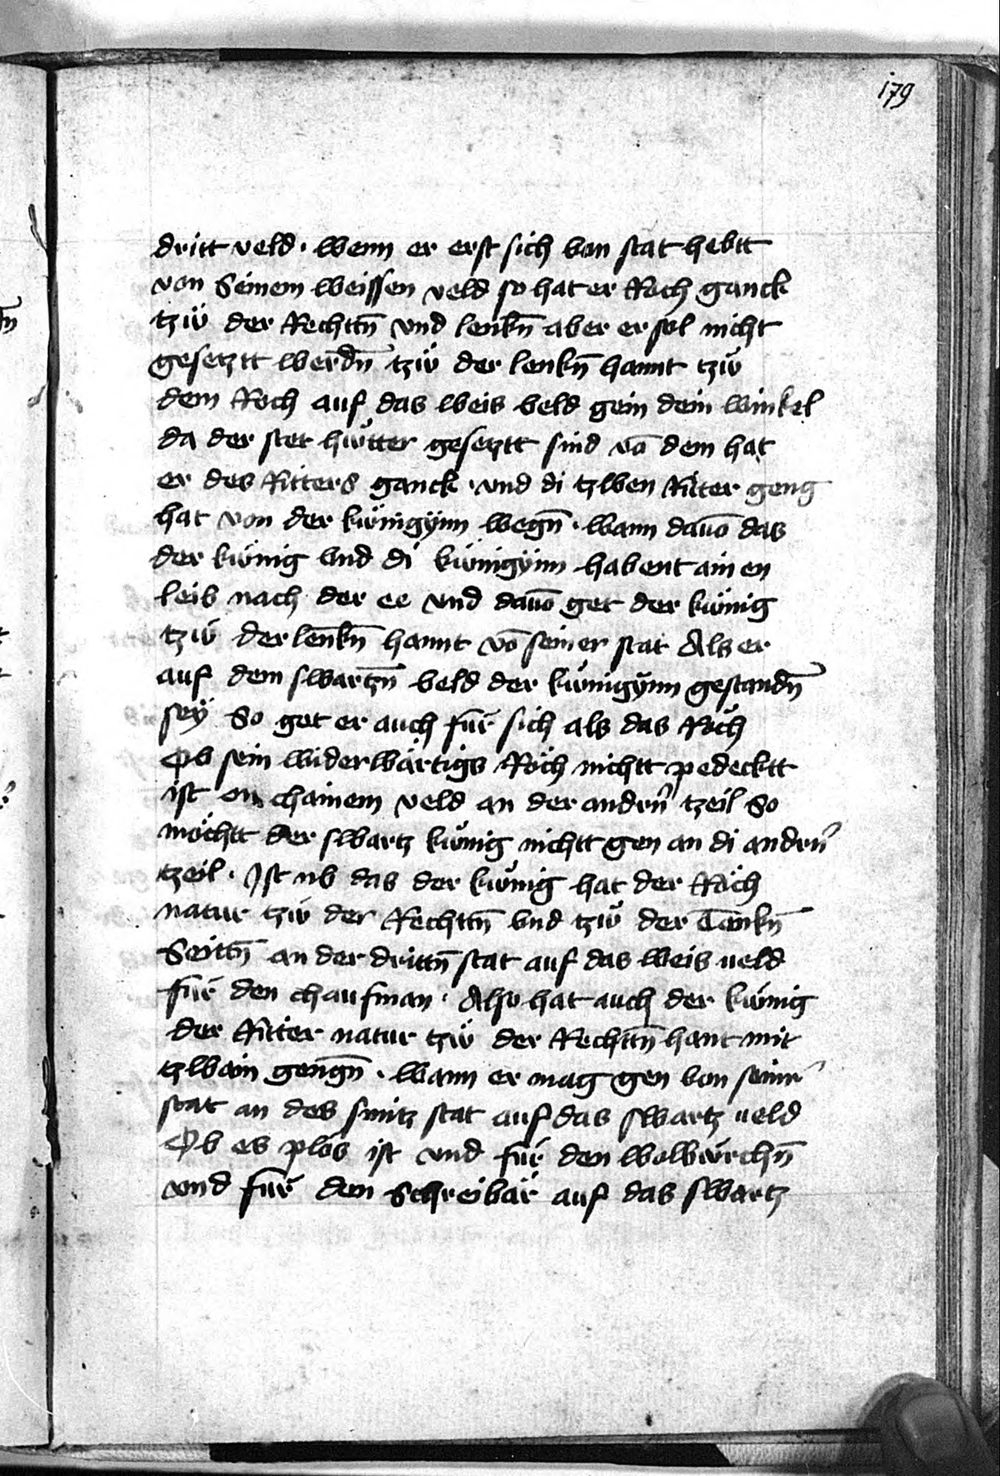 179
dritt veld · wenn er erst sich von stat hebtt
von seinem weissen veld so hat er Roch ganck
tzw̋ der Rechttn̄ vnd lenkn̄ aber er sol nicht
gesetztt werdn̄ tzw̋ der lenkn̄ hannt tzw̋
dem Roch auf das weis veld gein dem winkel
da der stet hw̋tter gesetztt sind vō dem hat
er des Ritters ganck · vnd di tzwen Ritter geng
hat von der kw̋nigÿnn wegn̄ · wann dauō das
der kw̋nig vnd di kw̋nigÿnn habent ainen
leib nach der ee vnd dauō get der kw̋nig
tzw̋ der lenkn̄ hannt vō seiner stat Als er
auf dem swartzn̄ veld der kw̋nigÿnn gestandn̄
seÿ So get er auch für sich als das Röch
Ob sein widerwärtigs Röch nichtt pedecktt
ist an chainem veld an der andrn̄ tzeil So
möchtt der swartz kw̋nig nichtt gen an di andrn̄
tzeil · Ist nv das der kw̋nig hat der Röch
natur tzw̋ der Rechttn̄ vnd tzw̋ der Lenkn̄
Seittn̄ an der drittn̄ stat auf das weis veld
für den chaufman · Also hat auch der kw̋nig
der Ritter natur tzw̋ der Rechttn̄ hant mit
tzwain gengn̄ · wann er mag gen von seinr
stat an des smitz stat auf das swartz veld
Ob es plös ist vnd für den wolwürchn̄
vnd für den Schreibär auf das swartz